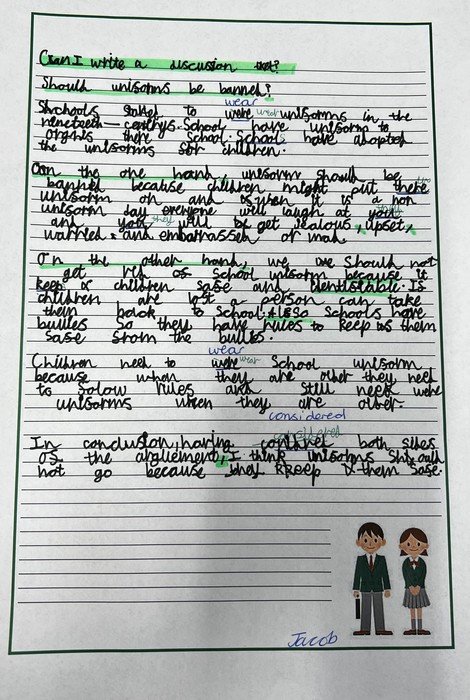 Can I write a discussion text?
Should unisorms be banned?
wear
Shchools started to were wear unisorms in the
nineteeth centhys. School have unisorm to
orgnies there School. Schools have adopted
the unisorms sor children.
On the one hand, unisorm should be
banned because children might put there
unisorm on and is when it is a non
unisorm day everyone well laugh at you
and you they will be get jealous, upset,
warried. and embarrassed or mad.
On the other hand, we are should not
get rid os School unisorm because it
keep x children sase and identisiable. Is
children are lost a person can take
them back to School. Also Schools have
bullies so they have rules to keep us them
sase srom the bullies.
wear
Children need to were wear School unisorm
because when they are older they need
to solow rules and still need were
unisorms when they are older.
considered
considered
In conclusion, having both sides
os the arguiement, I think unisorms Should
not go because they Kkeep them sase.
Jacob